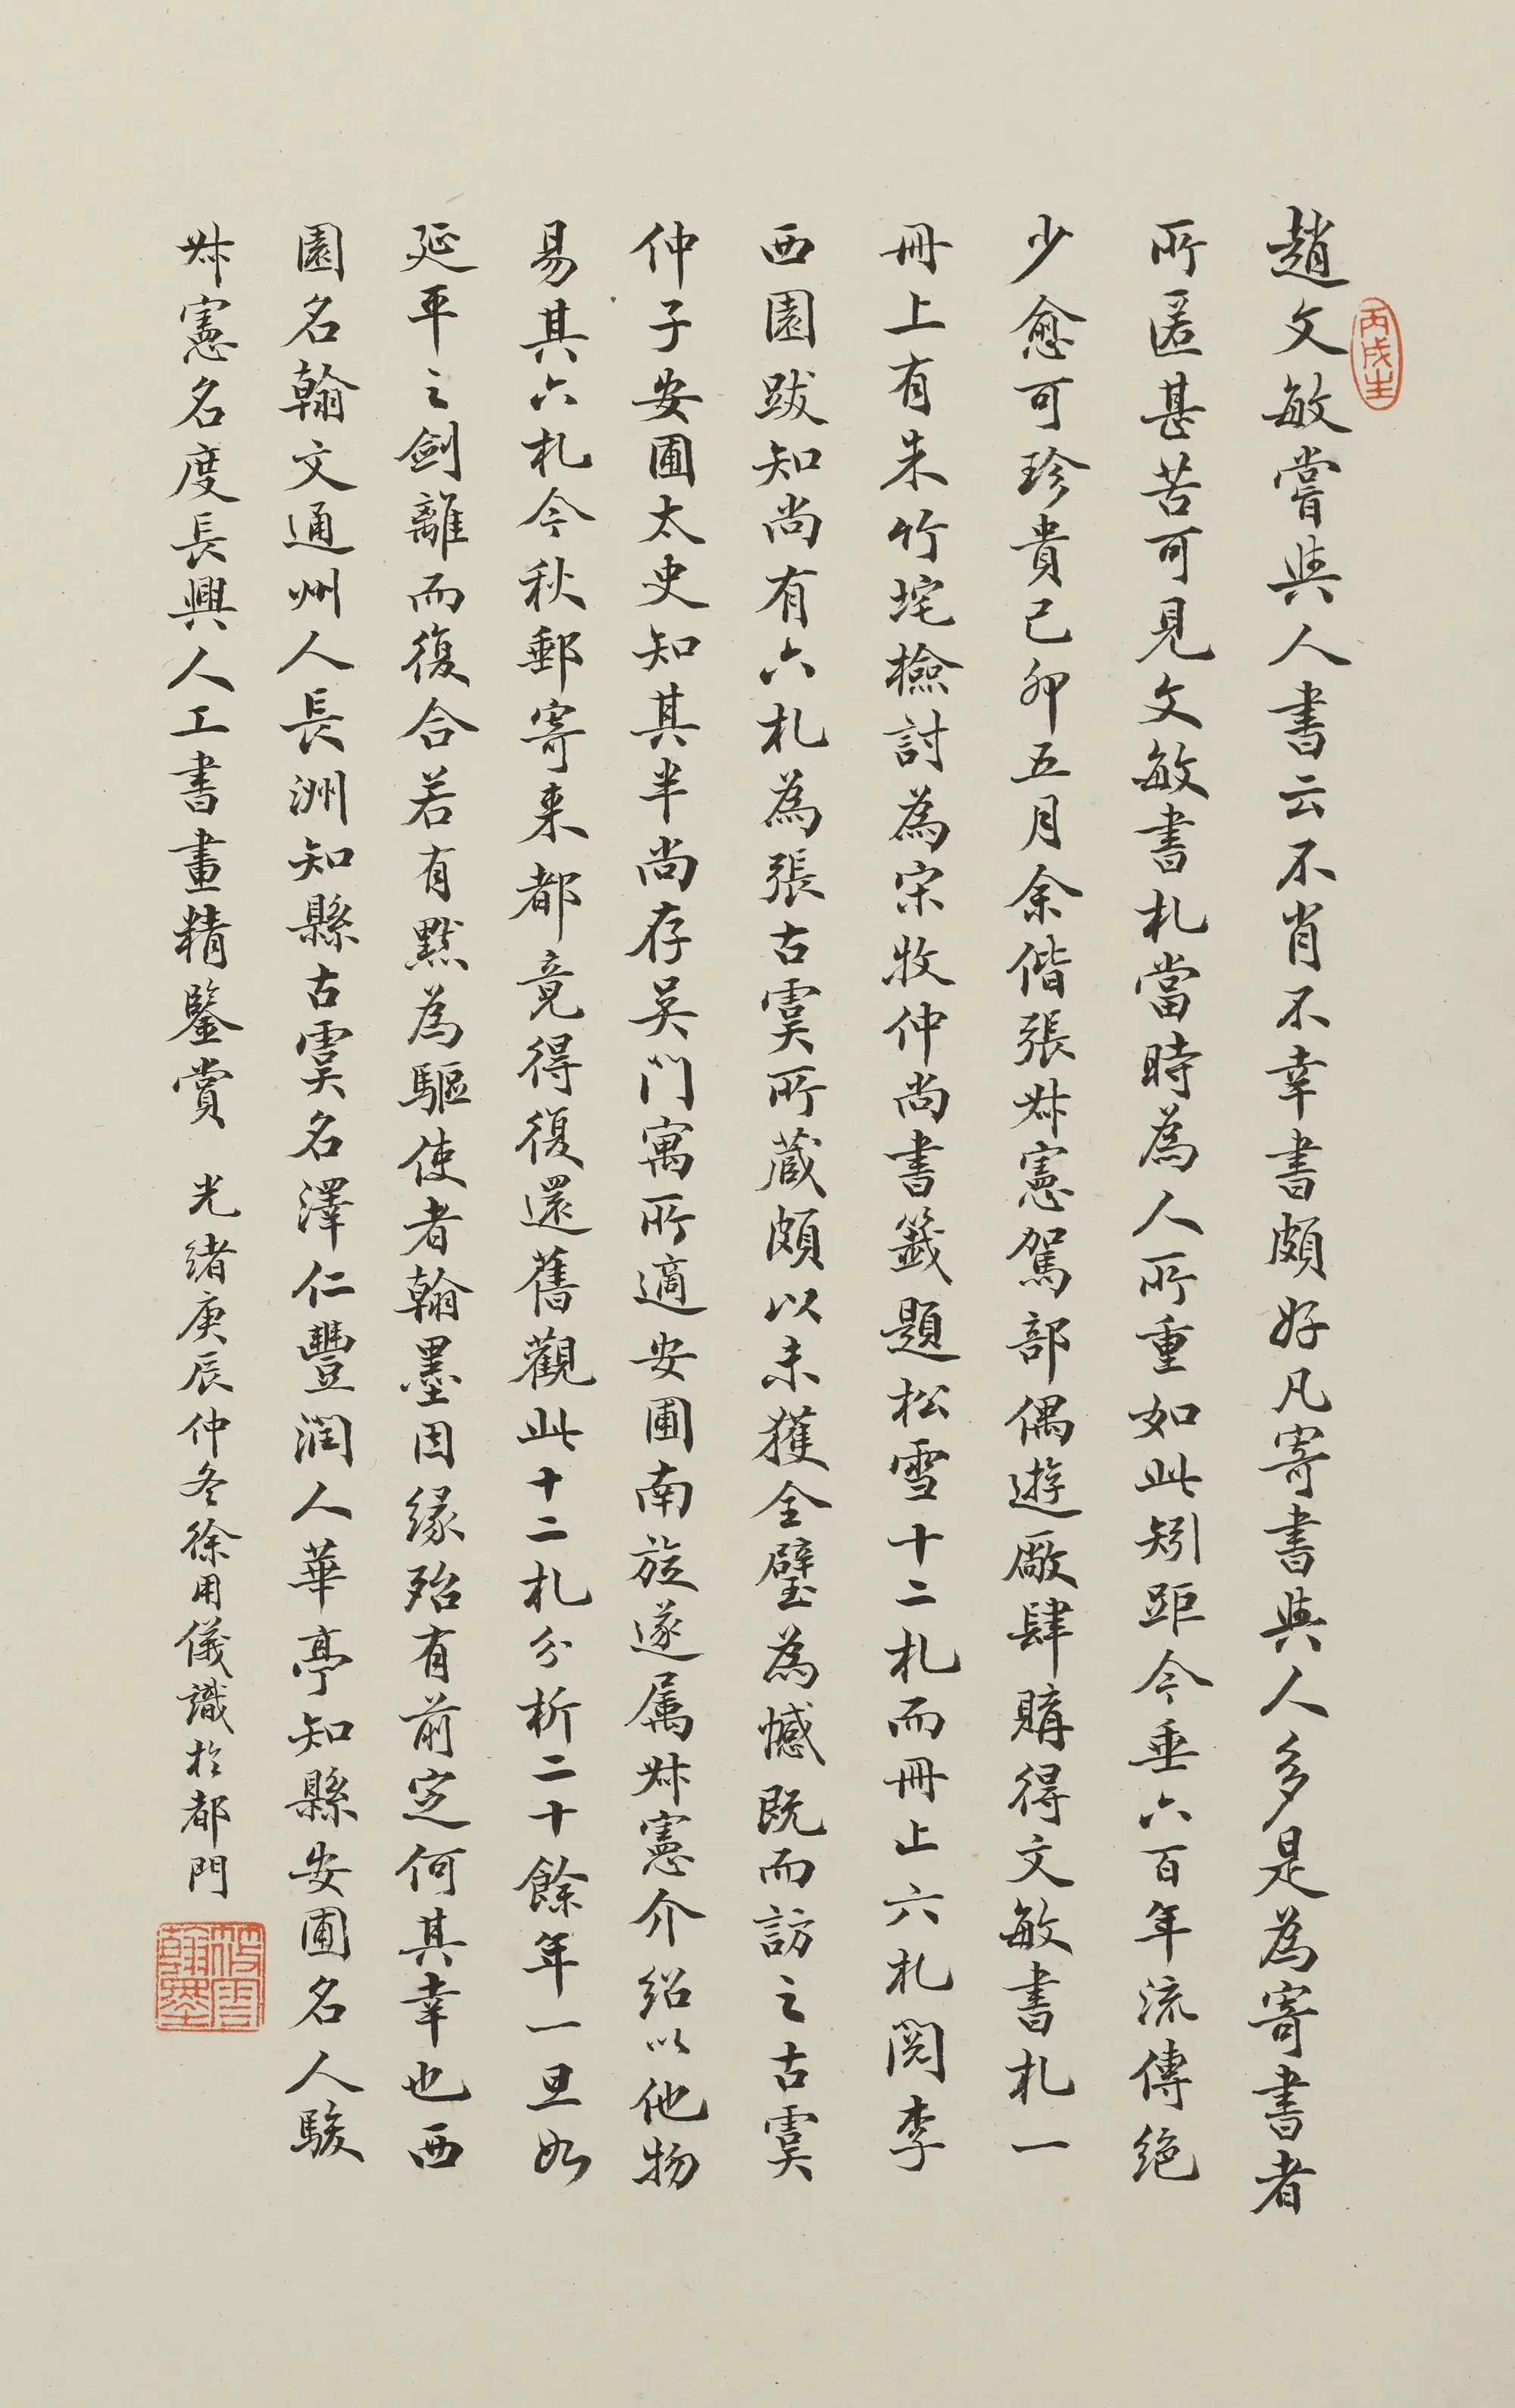 趙文敏嘗與人書云不肖不幸書頗好凡寄書與人多是為寄書者
所匿甚苦可見文敏書札當時為人所重如此矧距今垂六百年流傳絕
少愈可珍貴己卯五月余偕張尗憲駕部偶遊廠肆購得文敏書札一
冊上有朱竹垞檢討為宋牧仲尚書籤題松雪十二札而冊止六札閱李
西園跋知尚有六札為張古虞所蔵頗以未獲全璧為憾既而訪之古虞
仲子安圃太史知其半尚存吳門寓所適安圃南旋遂屬尗憲介紹以他物
易其六札今秋郵寄来都竟得復還舊觀此十二札分析二十餘年一旦如
延平之劍離而復合若有默為驅使者翰墨因緣殆有前定何其幸也西
園名翰文通州人長洲知縣古虞名澤仁豐潤人華亭知縣安圃名人駿
尗憲名度長興人工書畫精鑒賞 光緒庚辰仲冬徐用儀識於都門
丙戌生
筱雲翰墨